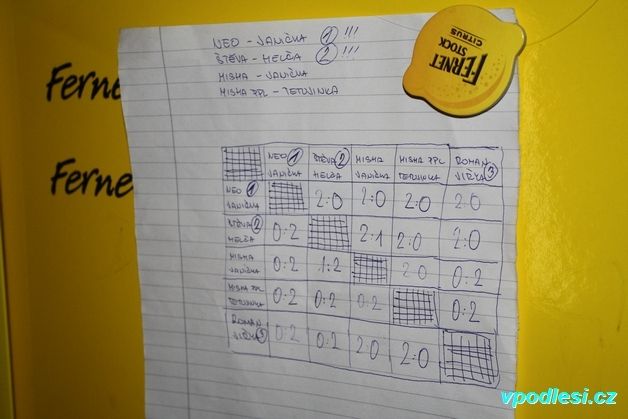 NEO - JANIČKA 1 !!!
ŠTĚVA - HELČA 2 !!!
MISHA - JANIČKA
MISHA ZPL - TETUJINKA
FERNET
STOCK
CITRUS
Ferne
Ferne
NEO 1 ŠTĚVA 2 MISHA MISHA ZPL ROMAN
JANIČKA HELČA JANIČKA TETUJINKA VIŤKA 3
NEO 1
JANIČKA 2:0 2:0 2:0 2:0
ŠTĚVA 2
HELČA 0:2 2:1 2:0 2:0
MISHA
JANIČKA 0:2 1:2 2:0 0:2
MISHA ZPL
TETUJINKA 0:2 0:2 0:2 0:2
ROMAN
VIŤKA 3 0:2 0:2 2:0 2:0
vpodlesi.cz